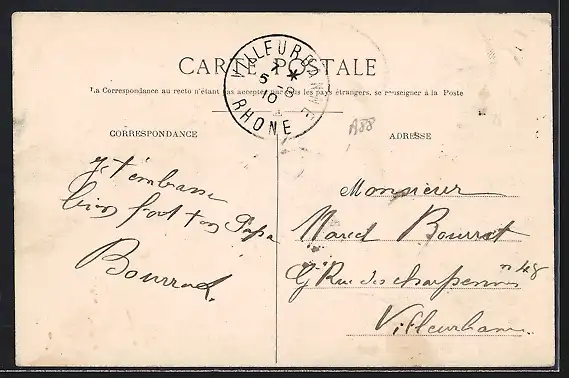 CARTE POSTALE
La Correspondance au recto n'étant pas acceptée par tous les pays étrangers, se renseigner à la Poste
VILLEURBANNE
5 8
10
RHONE
A88
CORRESPONDANCE
ADRESSE
Je t'embrasse
bien fort ton Papa
Bourrat
Monsieur
Marcel Bourrat
Rue des charpennes n° 48
Villeurbanne